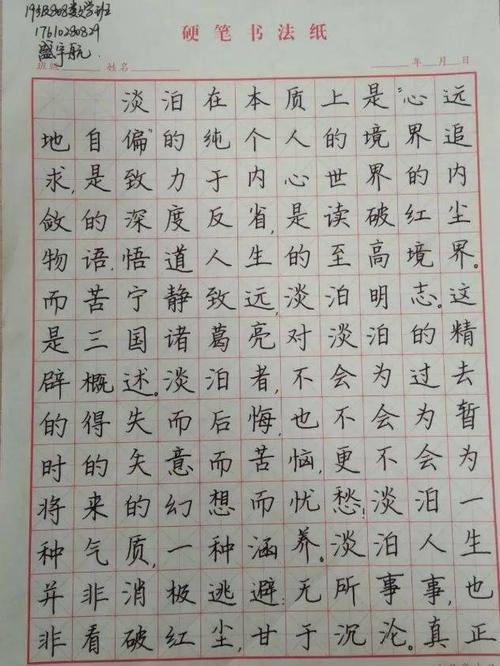 19级808数学班
17610280829
盛宇航
硬笔书法纸
班级 姓名 年 月 日
淡泊在本质上是“心远
地自偏”的纯个人的境界追
求,是致力于内心世界的内
敛的深度反省,是读破红尘
物语,悟道人生的至高境界。
而苦宁静致远,淡泊明志。这
是三国诸葛亮对淡泊的精
辟概述。淡泊者,不会为过去
的得失而后悔,也不会为暂
时的失意而苦恼,更不会为
将来的幻想而忧愁;淡泊一
种气质,一种涵养。淡泊人生
并非消极逃避;无所事事,也
非看破红尘,甘于沉沦。真正